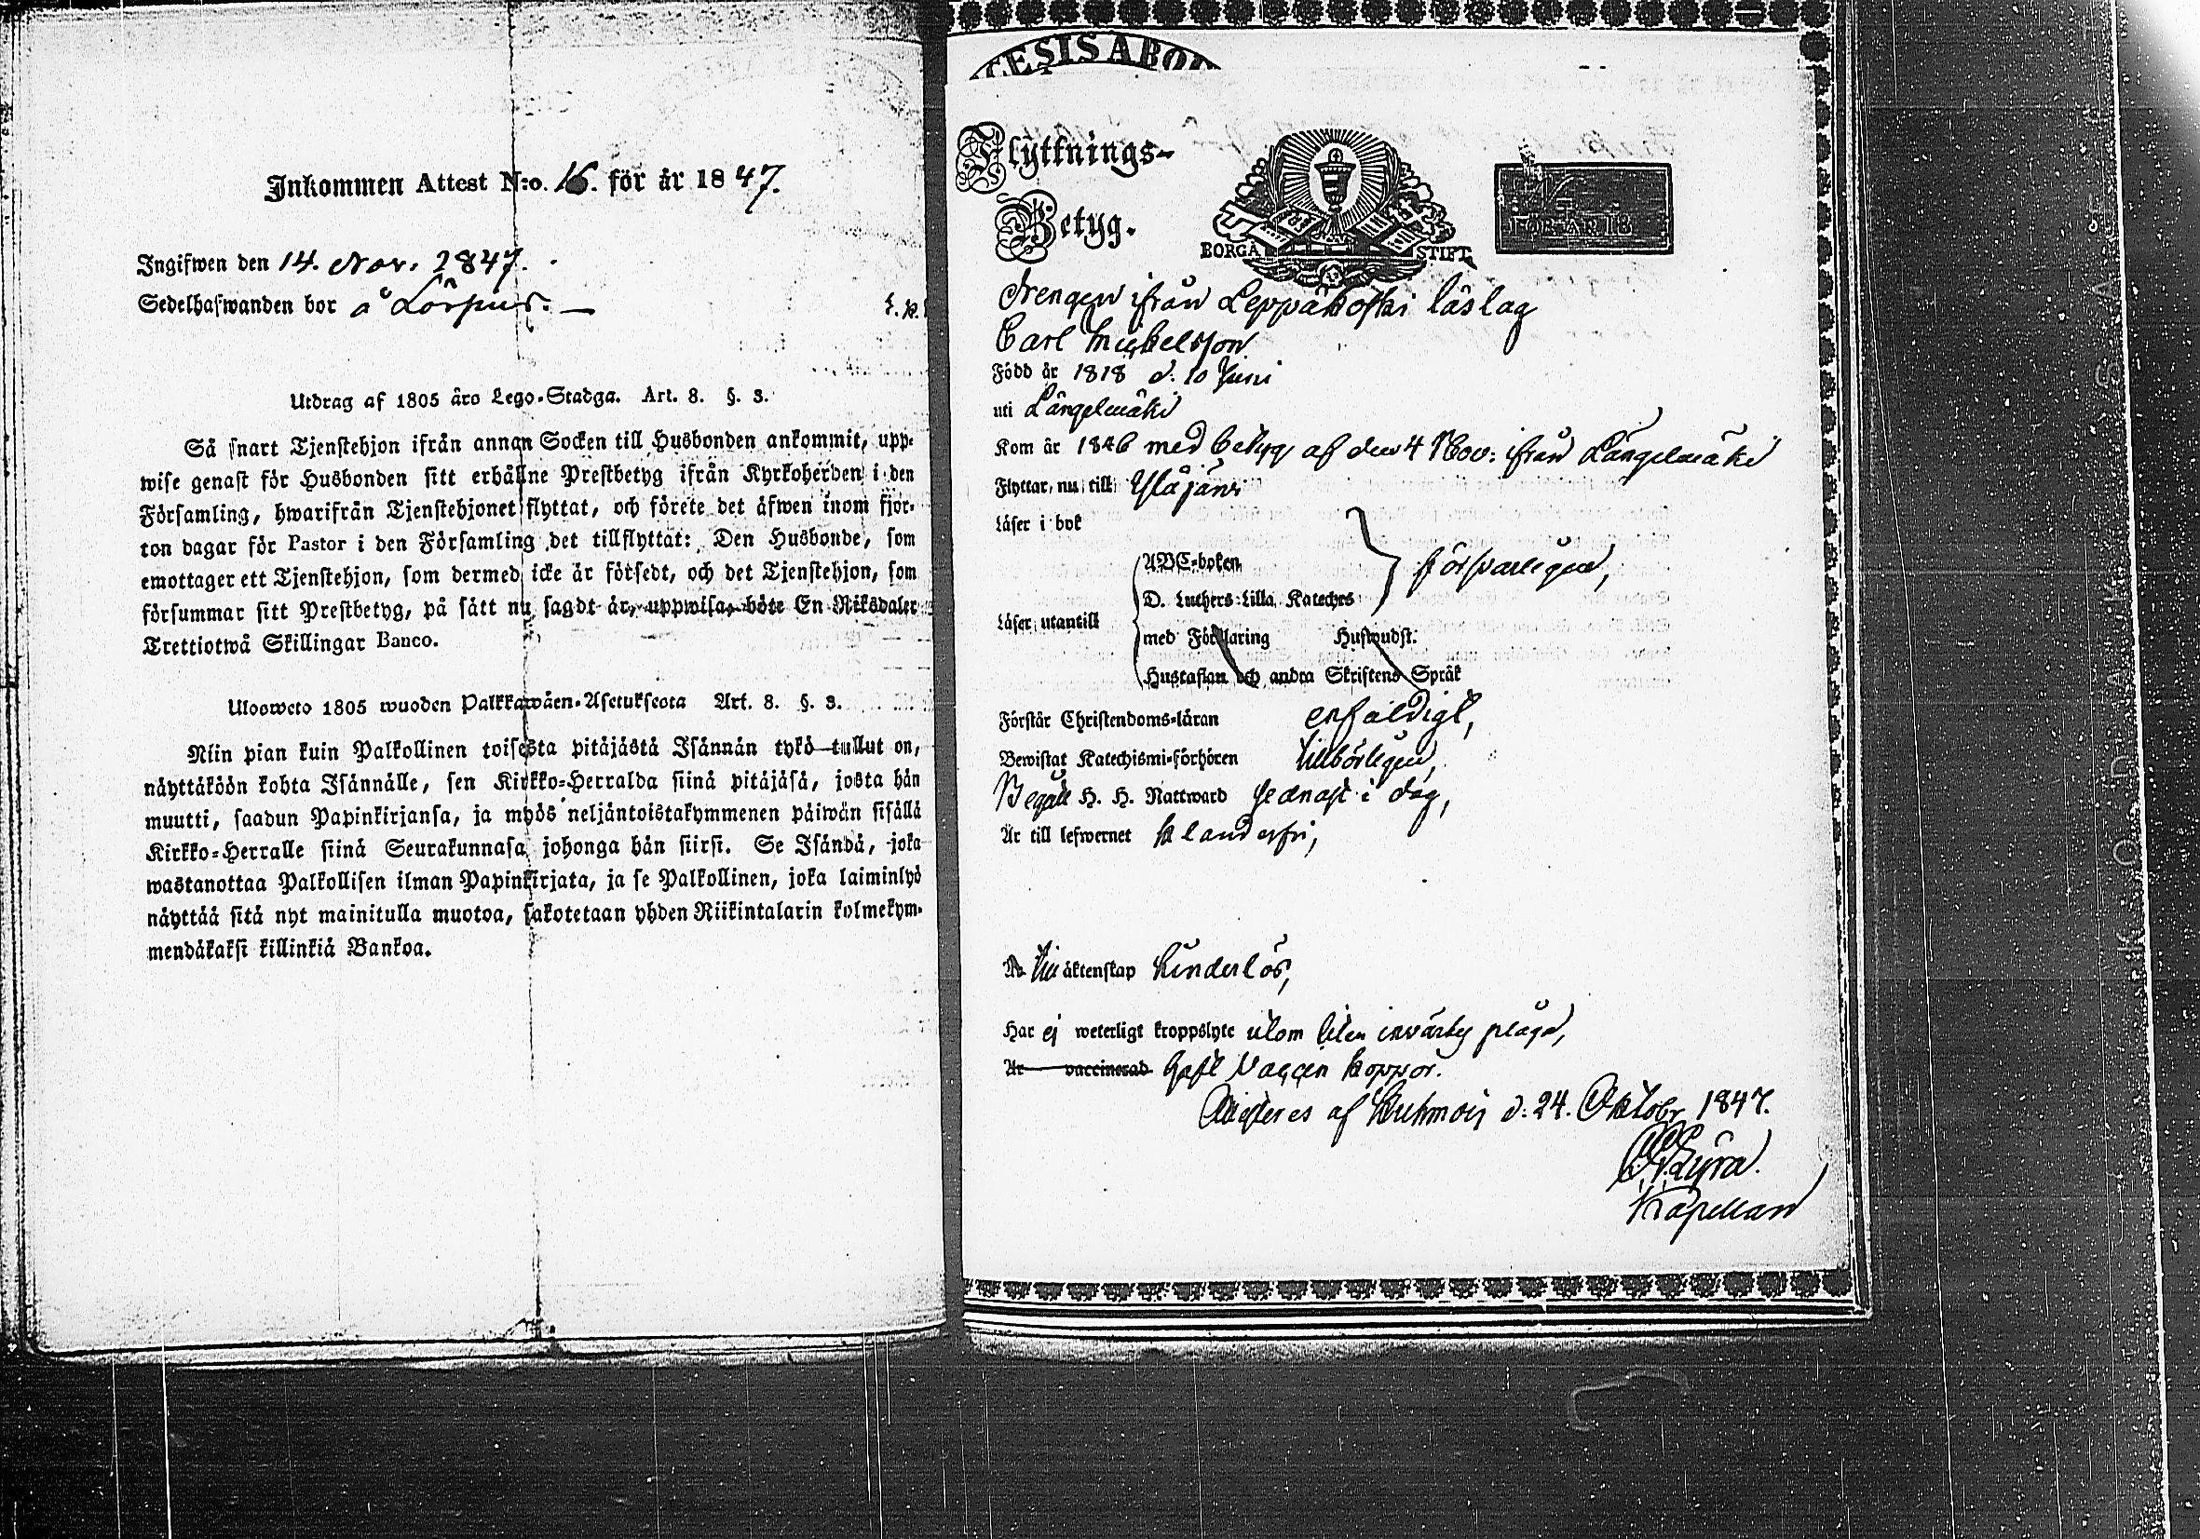 Inkommen Attest N:o. 16. för år 1847.
Ingifwen den 14. Nov. 1847.
Sedelhafwanden bor å Lörpus.
Utdrag af 1805 års Lego-Stadga. Art. 8. §. 3.
Så snart Tjenstehjon ifrån annan Socken till Husbonden ankommit, upp-
wise genast för Husbonden sitt erhållne Prestbetyg ifrån Kyrkoherden i den
Församling, hwarifrån Tjenstehjonet flyttat, och förete det äfwen inom fjor-
ton dagar för Pastor i den Församling det tillflyttat: Den Husbonde, som
emottager ett Tjenstehjon, som dermed icke är försedt, och det Tjenstehjon, som
försummar sitt Prestbetyg, på sätt nu sagdt är, uppwisa, böte En Riksdaler
Trettiotwå Skillingar Banco.
Ulosweto 1805 wuoden Palkkawäen-Asetuksesta Art. 8. §. 3.
Niin pian kuin Palkollinen toisesta pitäjästä Isännän tykö tullut on,
näyttäköön kohta Isännälle, sen Kirkko-Herralda siinä pitäjäsä, josta hän
muutti, saadun Papinkirjansa, ja myös neljäntoistakymmenen päiwän sisällä
Kirkko-Herralle siinä Seurakunnasa johonga hän siirsi. Se Isändä, joka
wastanottaa Palkollisen ilman Papinkirjata, ja se Palkollinen, joka laiminlyö
näyttää sitä nyt mainitulla muotoa, sakotetaan yhden Riikintalarin kolmekym-
mendäkaksi killinkiä Bankoa.
ESIS ABO
Flyttnings-
Betyg.
BORGÅ STIFT
FÖR ÅR 18
Drengen ifrån Leppäkoski läslag
Carl Mickelsson
Född år 1818 d: 10 Juni
uti Längelmäki
Kom år 1846 med betyg af den 4 Nov: ifrån Längelmäki
Flyttar nu till Ylöjärvi
Läser i bok
ABC-boken
D. Luthers Lilla Kateches
försvarligen,
Läser utantill
med Förklaring Huswudst.
Hustaflan och andra Skriftens Språk
Förstår Christendoms-läran enfaldigt,
Bewistat Katechismi-förhören tillbörligen,
Begått H. H. Nattward senast i dag,
Är till lefwernet klanderfri,
Till äktenskap hinderlös,
Har ej weterligt kroppslyte utom liten invärtes plåga,
Är vaccinerad Haft Vaccin koppor.
Attesteres af Kuhmois d: 24. Oktobr 1847.
Lyra.
Kapellan